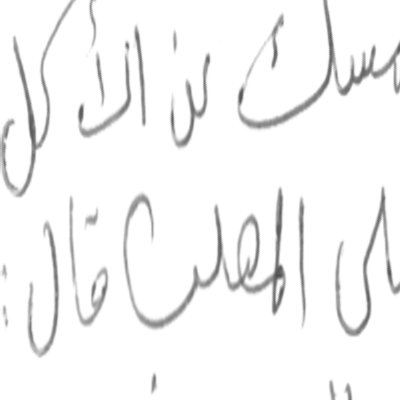 مسك عن الأكل
على المهلب قال: